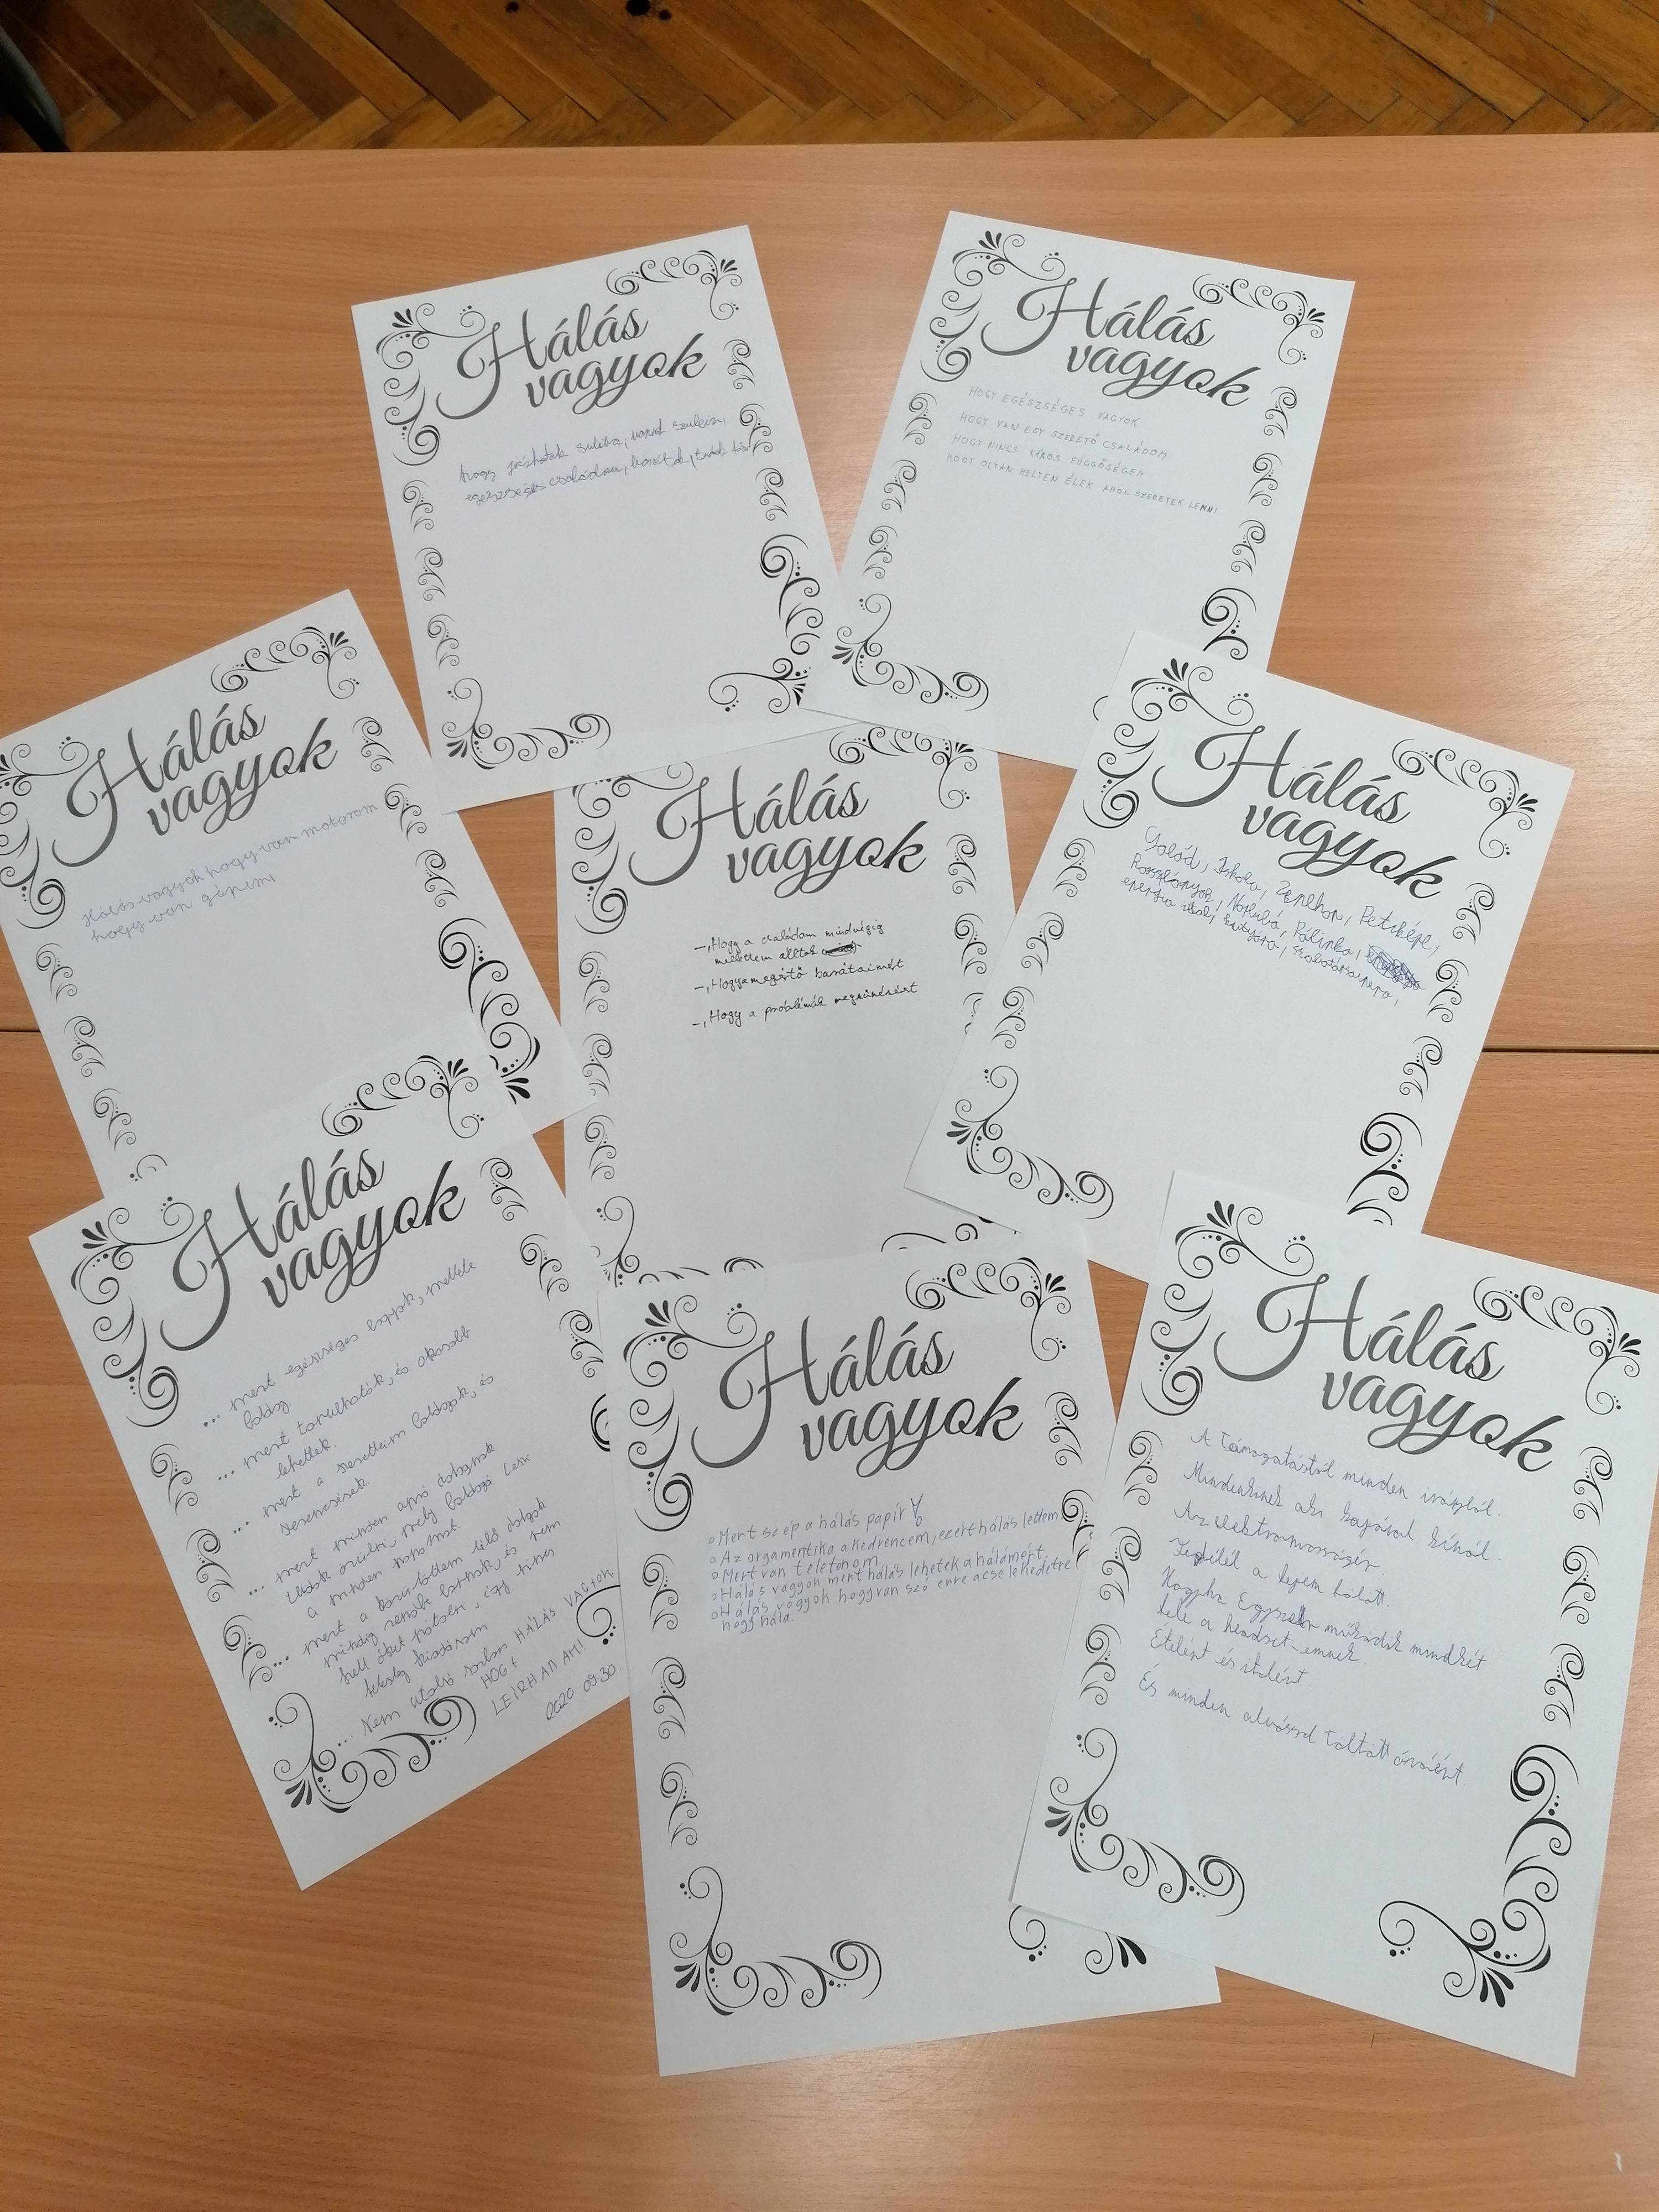 Hálás
vagyok
hogy járhatok suliba, vannak szüleim,
egészséges családom, barátok,
Hálás
vagyok
HOGY EGÉSZSÉGES VAGYOK
HOGY VAN EGY SZERETŐ CSALÁDOM
HOGY NINCS KÁROS FÜGGŐSÉGEM
HOGY OLYAN HELYEN ÉLEK AHOL SZERETEK LENNI
Hálás
vagyok
Hálás vagyok hogy van motorom
hogy van gépem
Hálás
vagyok
-, Hogy a családom mindvégig
mellettem álltak
-, Hogy a megértő barátaimért
-, Hogy a problémák megszűnésért
Hálás
vagyok
Család, Iskola, Petiképe,
Pálinka,
energia ital, kutyára,
Hálás
vagyok
... mert egészséges vagyok, mellette
boldog.
... mert tanulhatok, és okosabb
lehettek.
... mert a szeretteim boldogok, és
szerencsések.
... mert minden apró dolognak
tudok örülni, mely boldoggá teszi
a minden napomat.
... mert a körülöttem lévő dolgok
mindig rendbe hoznak, és nem
kell őket pótolni, így nincs
... Nem utolsó sorban HÁLÁS VAGYOK,
HOGY
LEÍRHATTAM!
2020 09.30.
Hálás
vagyok
o Mert szép a hálás papír
o Az orgamentika a kedvencem, ezért hálás lettem
o Mert van telefonom
o Hálás vagyok mert hálás lehetek a hálámért
o Hálás vagyok hogy van szó erre a cselekedetre
hogy hála.
Hálás
vagyok
A támogatástól minden irányból.
Mindenkinek aki kajával kínál.
Az elektromosságér
a lepem halott.
Hogyha Egyszer működik mindkét
fele a headset-emnek.
Ételért és italért
És minden alvással töltött óráért.